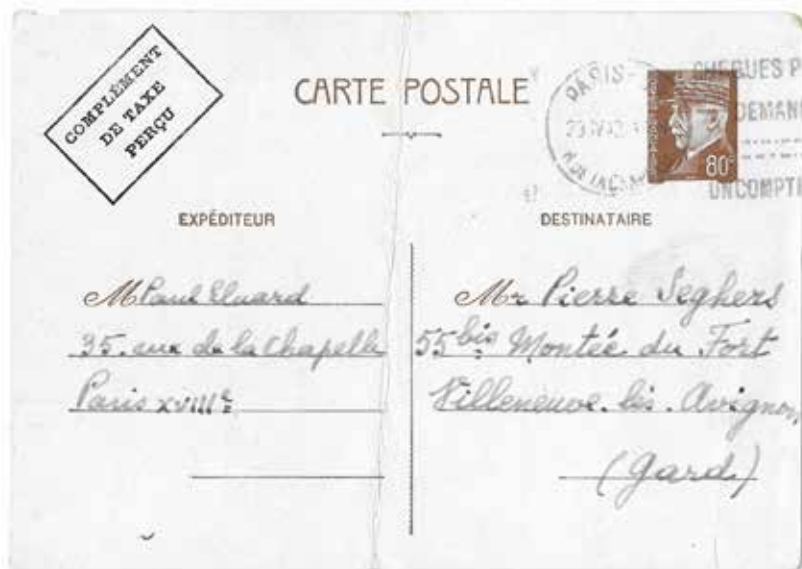 COMPLÉMENT
DE TAXE
PERÇU
CARTE POSTALE
PARIS
CHEQUES P
DEMAN
UN COMPT
80c
EXPÉDITEUR
M Paul Eluard
35. rue de la Chapelle
Paris XVIIIe
DESTINATAIRE
Mr Pierre Seghers
55 bis Montée du Fort
Villeneuve. lès. Avignon
(Gard)